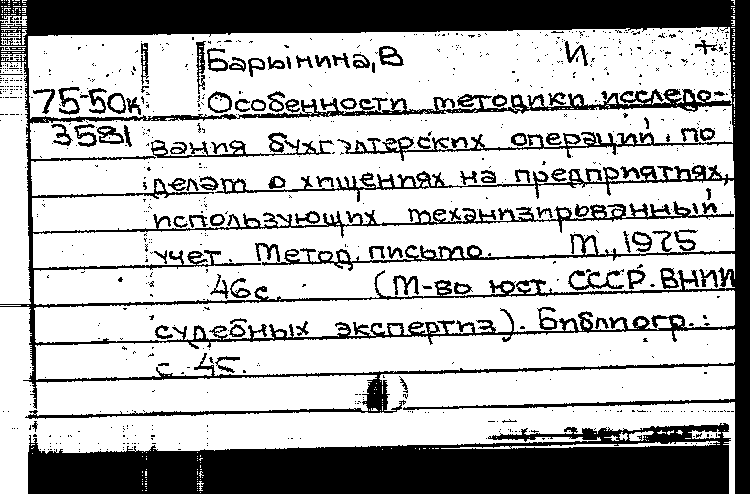 Барынина, В И +
75-50к Особенности методики исследо-
3581 вания бухгалтерских операций по
делам о хищениях на предприятиях,
использующих механизированный
учет. Метод. письмо. М., 1975
46с. (М-во юст. СССР. ВНИИ
судебных экспертиз). Библиогр.:
с. 45.